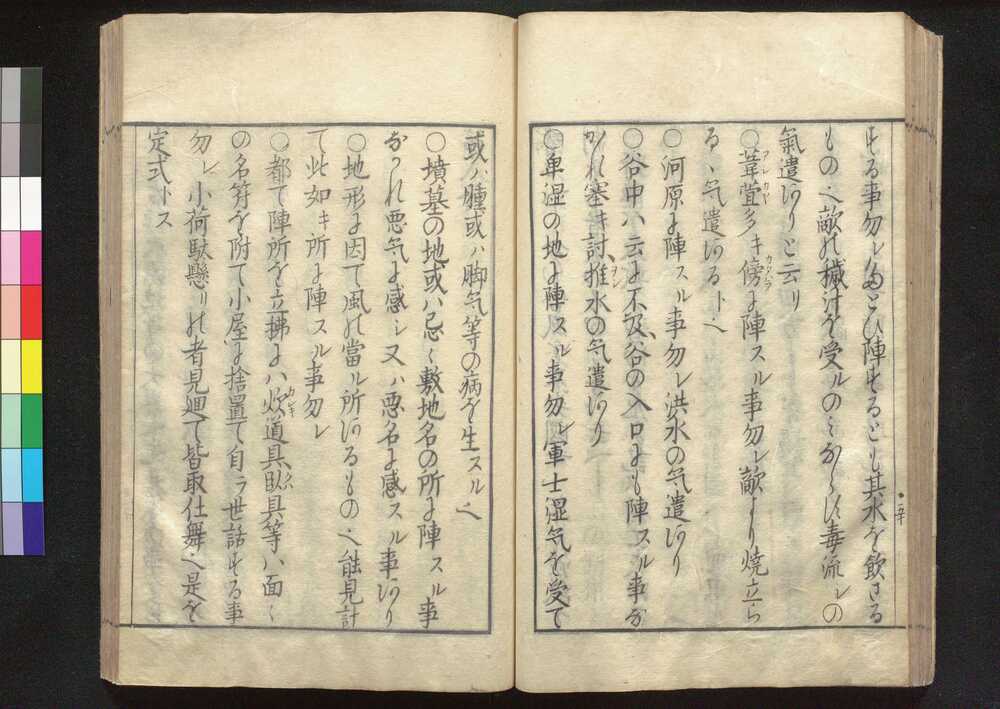 する事勿レ縦とひ陣するとも其水を飲さる
もの也敵の穢汁を受ルのミならす毒流シの
氣遣有りと云リ
○葦萱多キ傍に陣スル事勿レ敵より焼立ら
るゝ気遣有るト也
○河原に陣スル事勿レ洪水の気遣有り
○谷中ハ云に不及谷の入口にも陣スル事な
かれ塞キ討推水の気遣有り
○卑湿の地に陣スル事勿レ軍士湿気を受て
或ハ腫或ハ脚気等の病を生スル也
○墳墓の地或ハ忌ミ敷地名の所に陣スル事
なかれ悪気に感シ又ハ悪名に感スル事有り
○地形に因て風の當ル所有るもの也能見計
て此如キ所に陣スル事勿レ
○都て陣所を立拂にハ炊道具臥具等ハ面〻
の名符を附て小屋に捨置て自ラ世話する事
勿レ小荷駄懸リの者見廻て皆取仕舞也是を
定式トス